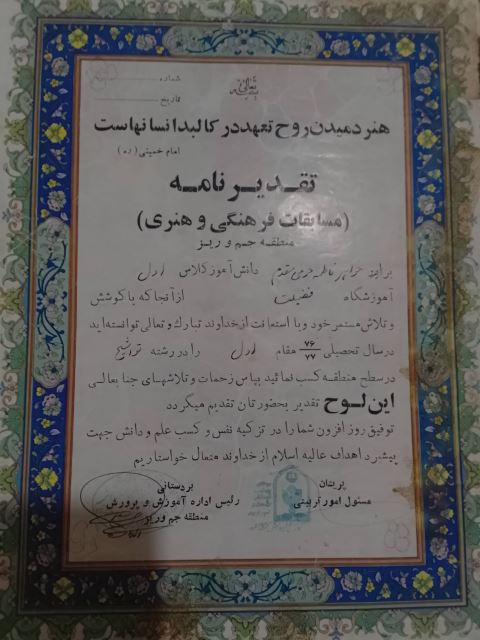 بسمه تعالی
شماره
تاریخ
هنر دمیدن روح تعهد در کالبد انسانهاست
امام خمینی (ره)
تقدیر نامه
(مسابقات فرهنگی و هنری)
منطقه جم و ریز
برادر خواهر فاطمه مقدم دانش آموز کلاس اول
آموزشگاه فضیلت از آنجا که با کوشش
و تلاش مستمر خود و با استعانت از خداوند تبارک و تعالی توانسته اید
در سال تحصیلی ۷۶/۷۷ مقام اول را در رشته
در سطح منطقه کسب نمائید بپاس زحمات و تلاشهای جنابعالی
این لوح تقدیر بحضورتان تقدیم میگردد
توفیق روز افزون شما را در تزکیه نفس و کسب علم و دانش جهت
پیشبرد اهداف عالیه اسلام از خداوند متعال خواستاریم
پریشان
مسئول امور تربیتی
بردستانی
رئیس اداره آموزش و پرورش
منطقه جم و ریز